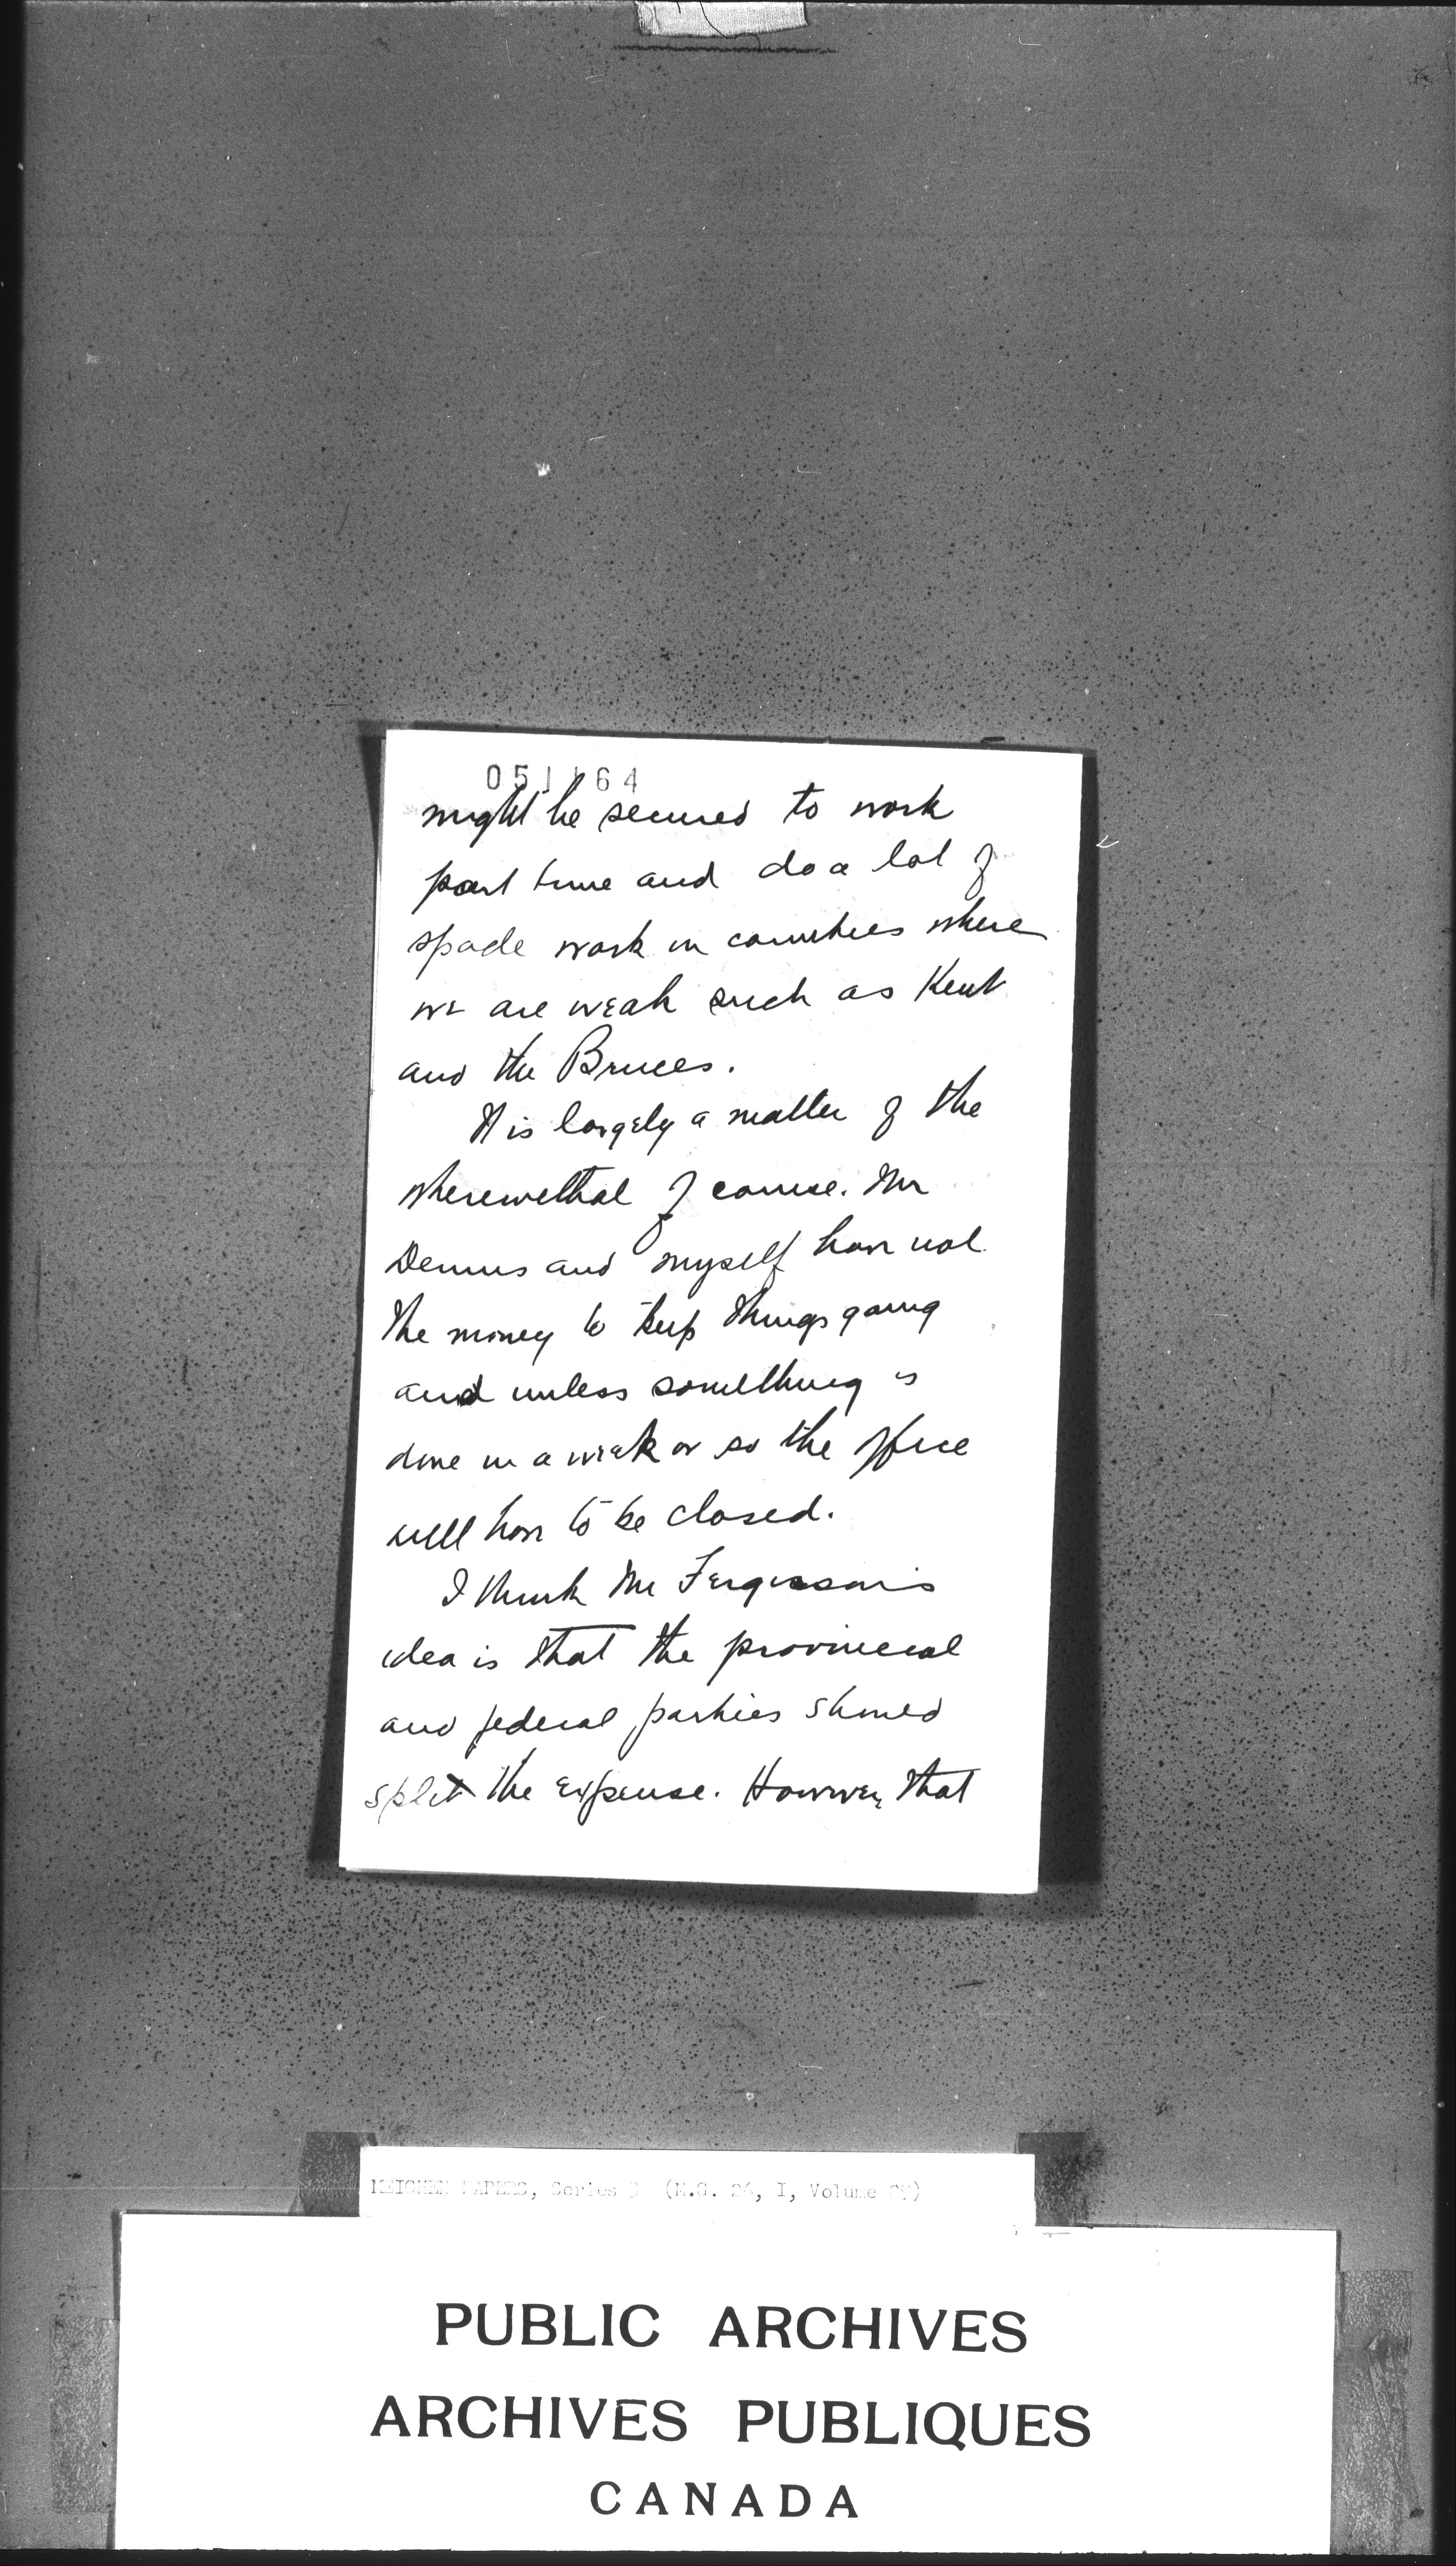 051164
might be secured to work
part time and do a lot of
spade work in counties where
we are weak such as Kent
and the Bruces.
It is largely a matter of the
wherewethal of course. Mr
Dennis and myself have not
the money to keep things going
and unless something is
done in a week or so the office
will have to be closed.
I think Mr Fergusson's
idea is that the provincial
and federal parties should
split the expense. However, that
MEIGHEN PAPERS, Series (M.G. 26, I, Volume
PUBLIC ARCHIVES
ARCHIVES PUBLIQUES
CANADA